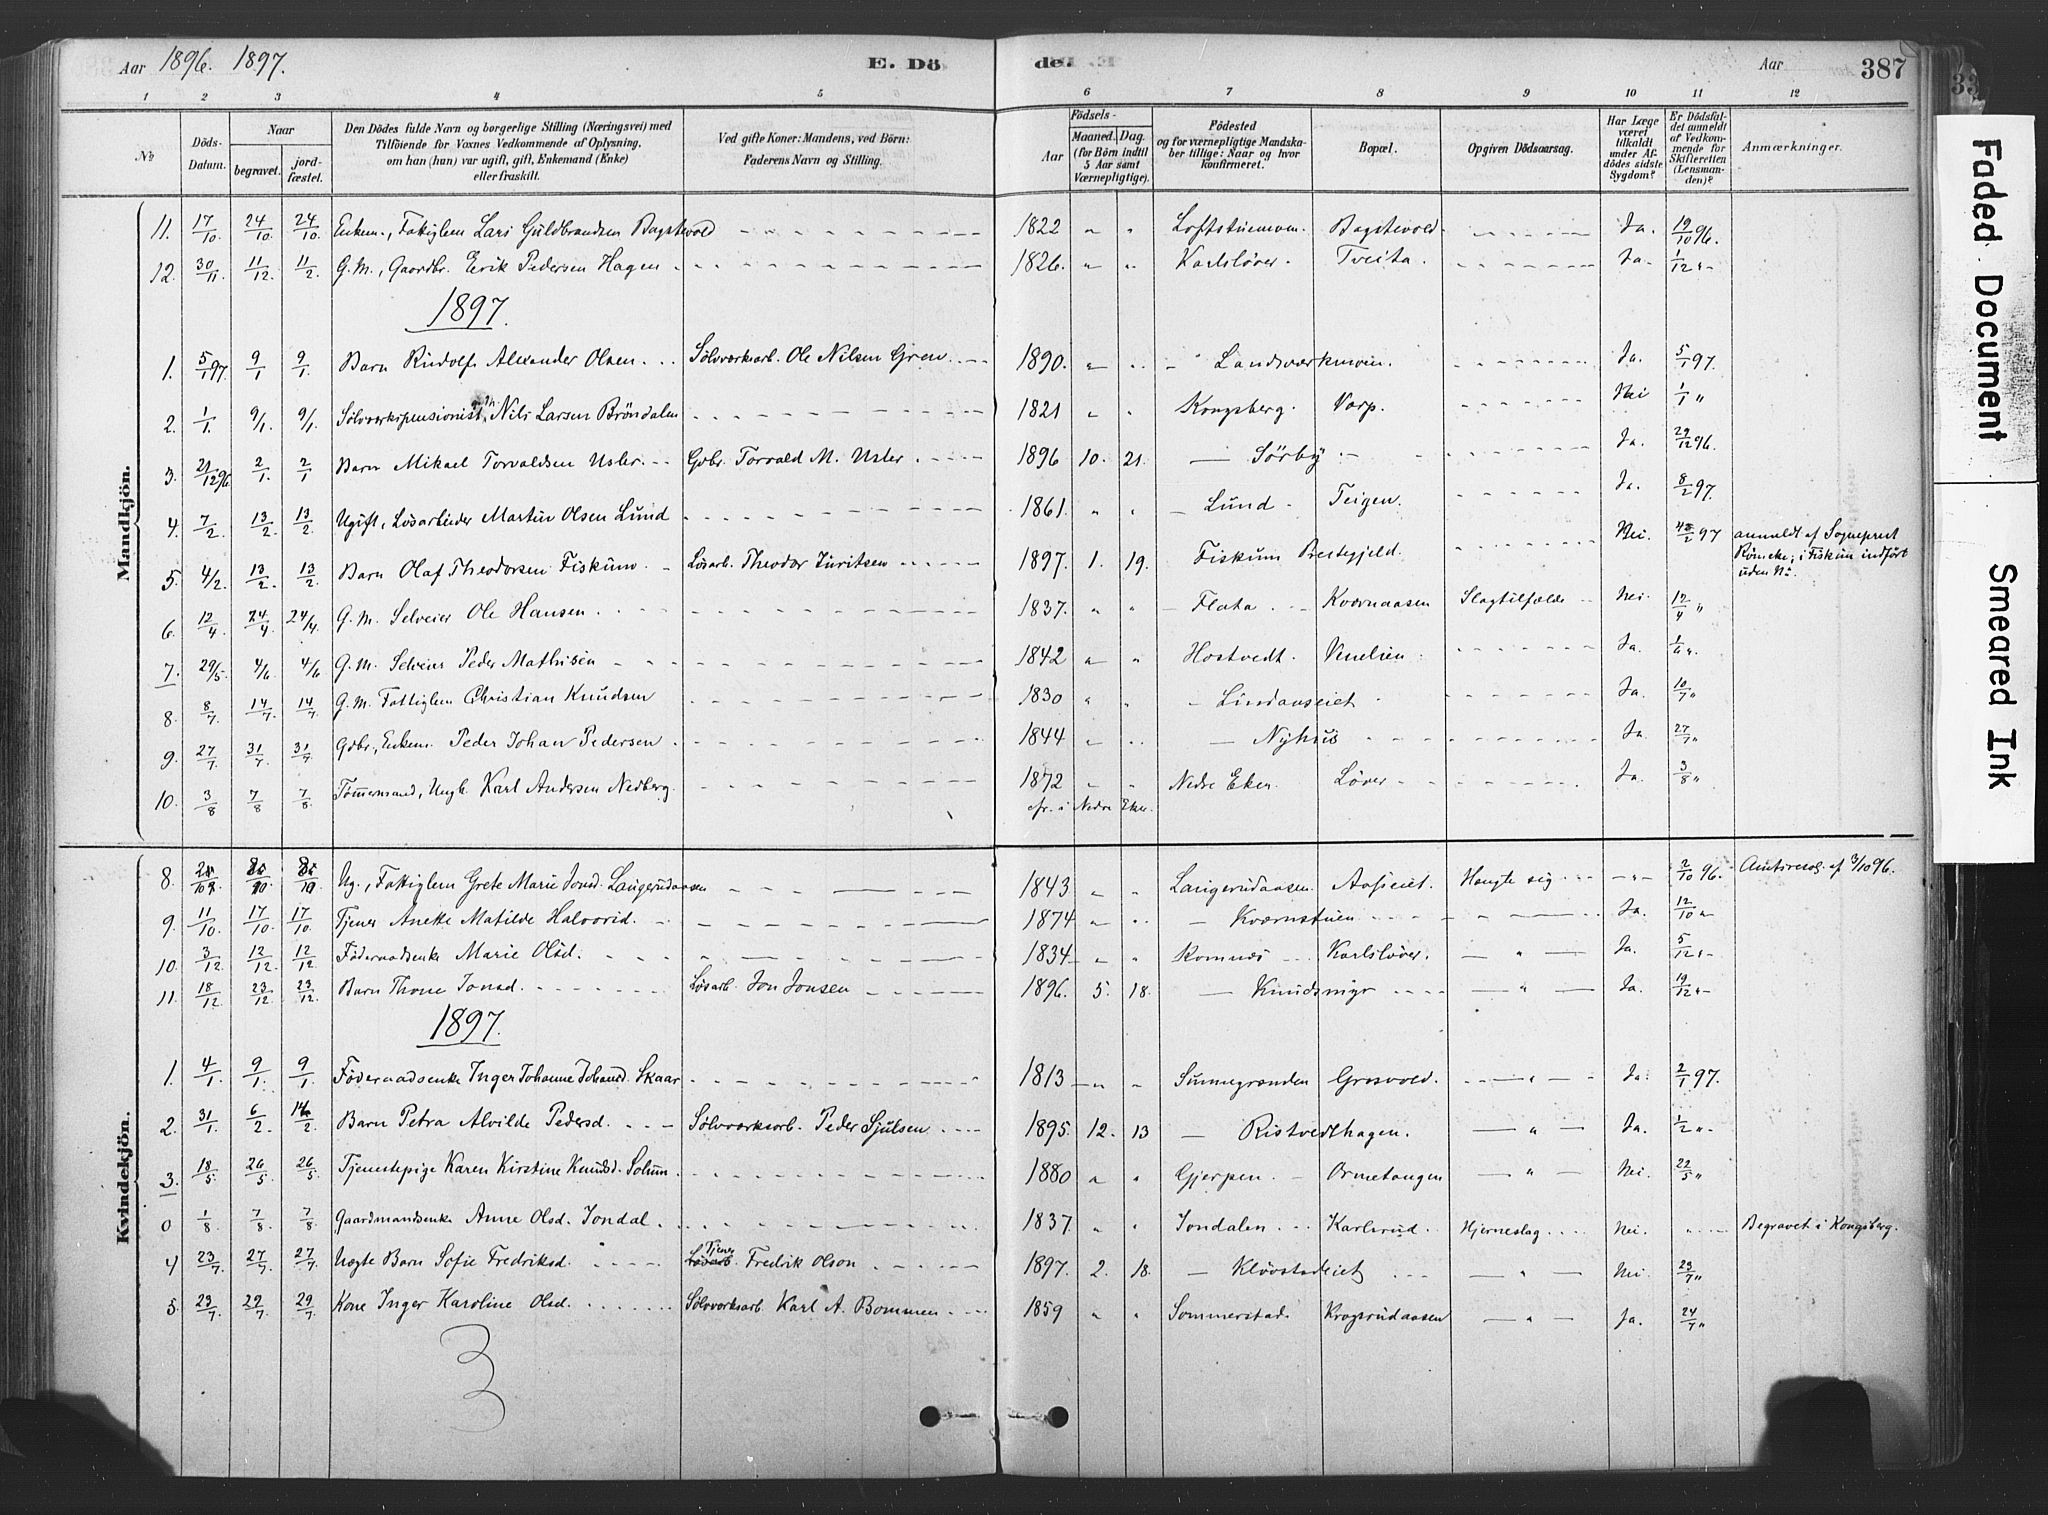 Aar 1896. 1897. E. Dö de. Aar 387
1 2 3 4 5 6 7 8 9 10 11 12
No Döds-Datum. Naar begravet. jordfæstet. Den Dödes fulde Navn og borgerlige Stilling (Næringsvei) med Tilföiende for Voxnes Vedkommende af Oplysning, om han (hun) var ugift, gift, Enkemand (Enke) eller fraskilt. Ved gifte Koner: Mandens, ved Börn: Faderens Navn og Stilling. Födsels- Aar Maaned. Dag. (for Börn indtil 5 Aar samt Værnepligtige). Födested og for værnepligtige Mandskaber tillige: Naar og hvor konfirmeret. Bopæl. Opgiven Dödsaarsag. Har Læge været tilkaldt under Afdödes sidste Sygdom? Er Dödsfaldet anmeldt af Vedkommende for Skifteretten (Lensmanden)? Anmærkninger.
Mandkjön.
11. 17/10 24/10 24/10 Enkem., Fattiglem Lars Guldbrandsen Bagstevold 1822 " " Loftstuemoen. Bagstevold Ja. 19/10 96.
12. 30/11 11/12 11/2 G.M., Gaardbr. Erik Pedersen Hagen 1826. " " Karlsløver. Tveita. Ja. 1/12 "
1897.
1. 5/1 97. 9/1 9/1. Barn Rudolf Alexander Olsen. Sølvverksarb. Ole Nilsen Gren 1890. " " Landsverkmoen. Ja. 5/1 97.
2. 1/1. 9/1. 9/1. Sølvverkspensionist, Nils Larsen Brøndalen 1821 " " Kongsberg. Vorp. Nei 1/1 "
3. 21/12 96. 2/1 2/1 Barn Mikael Torvaldsen Usler. Gbr. Torvald M. Usler 1896 10. 21. — Sørby Ja. 29/12 96.
4. 7/2 13/2. 13/2 Ugift, Løsarbeider Martin Olsen Lund 1861. " " — Lund Teigen. Ja. 8/2 97.
5. 4/2 13/2 13/2 Barn Olaf Theodorsen Fiskum Løsarb. Theodor Juritsen 1897. 1. 19. Fiskum Prestegjeld. Nei. /2 97 anmeldt af Sogneprest Röneke; i Fiskum indfört uden No.
6. 12/4 24/4. 24/4. G.M. Selveier Ole Hansen. 1837. " " — Flata. Kvernaasen Slagtilfælde Nei. 12/4 "
7. 29/5 4/6 4/6 G.M. Selveier Peder Mathisen 1842 " " Hostvedt. Vinelien Ja. 1/6 "
8. 8/7. 14/7. 14/7. G.M. Fattiglem Christian Knudsen 1830 " " — Lindaaseiet Ja. 10/7 "
9. 27/7. 31/7 31/7. Gbr., Enkem. Peder Johan Pedersen 1844 " " — Nyhus Ja. 27/7 "
10. 3/8 7/8 7/8. Tømmermand, Ungk. Karl Andersen Nedberg. 1872 " " Nedre Eker Løver Ja. 3/8 "
cfr. i Nedre Eker.
Kvindekjön.
8. Ug., Fattiglem Grete Marie Jonsd. Langerudaasen 1843 " " Langerudaasen. Aaseiet. Hængte sig — " — 2/10 96. Amtsresol. af 3/10 96.
9. 11/10. 17/10. 17/10 Tjener Anette Matilde Halvorsd. 1874 " " — Kvernstuen Ja. 12/10 "
10. 3/12. 12/12. 12/12 Föderaadsenke Marie Olsd. 1834 " " Komnes Karlsløver. — " — Ja. 5/12 "
11. 18/12 23/12 23/12. Barn Thone Jonsd. Løsarb. Jon Jonsen 1896. 5. 18. — Knudsmyr — " — Ja. 19/12 "
1897.
1. 4/1. 9/1. 9/1. Föderaadsenke Inger Johanne Johansd. Skaar 1813 " " Sunnegrenden Grosvold. — " — Ja. 2/1 97.
2. 31/1. 6/2 14/2. Barn Petra Alvilde Pedersd. Sølvverksarb. Peder Sjulsen 1895. 12. 13 — Ristvedthagen. — " — Ja. 1/2 "
3. 18/5 26/5 26/5 Tjenestepige Karen Kirstine Knudsd. Solum 1880 " " Gjerpen. Ormetangen — " — Nei. 22/5 "
0 1/8 7/8. 7/8 Gaardmandsenke Anne Olsd. Jondal. 1837. " " Jondalen Karlsrud. Hjerneslag Nei. " Begravet i Kongsberg.
4 23/7. 27/7. 27/7 Uegte Barn Sofie Fredriksd. Løsarb. Tjener Fredrik Olson 1897. 2. 18. — Kløvstadeiet — " — Nei. 23/7 "
5. 23/7. 29/7 29/7. Kone Inger Karoline Olsd. Sølvverksarb. Karl A. Bommen 1859 " " Sommerstad. Krogsrudaasen — " — Ja. 24/7 "
3
Faded Document
Smeared Ink